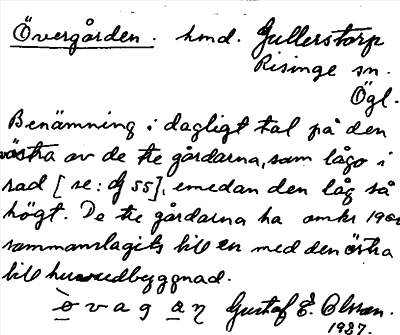 Övergården. hmd. Gullerstorp
Risinge sn.
Ögl.
Benämning i dagligt tal på den
västra av de tre gårdarna, som lågo i
rad [se: dj 55], emedan den låg så
högt. De tre gårdarna ha omkr 190
sammanslagits till en med den östra
till huvudbyggnad.
ò v a g a n Gustaf E. Olsson.
1937.